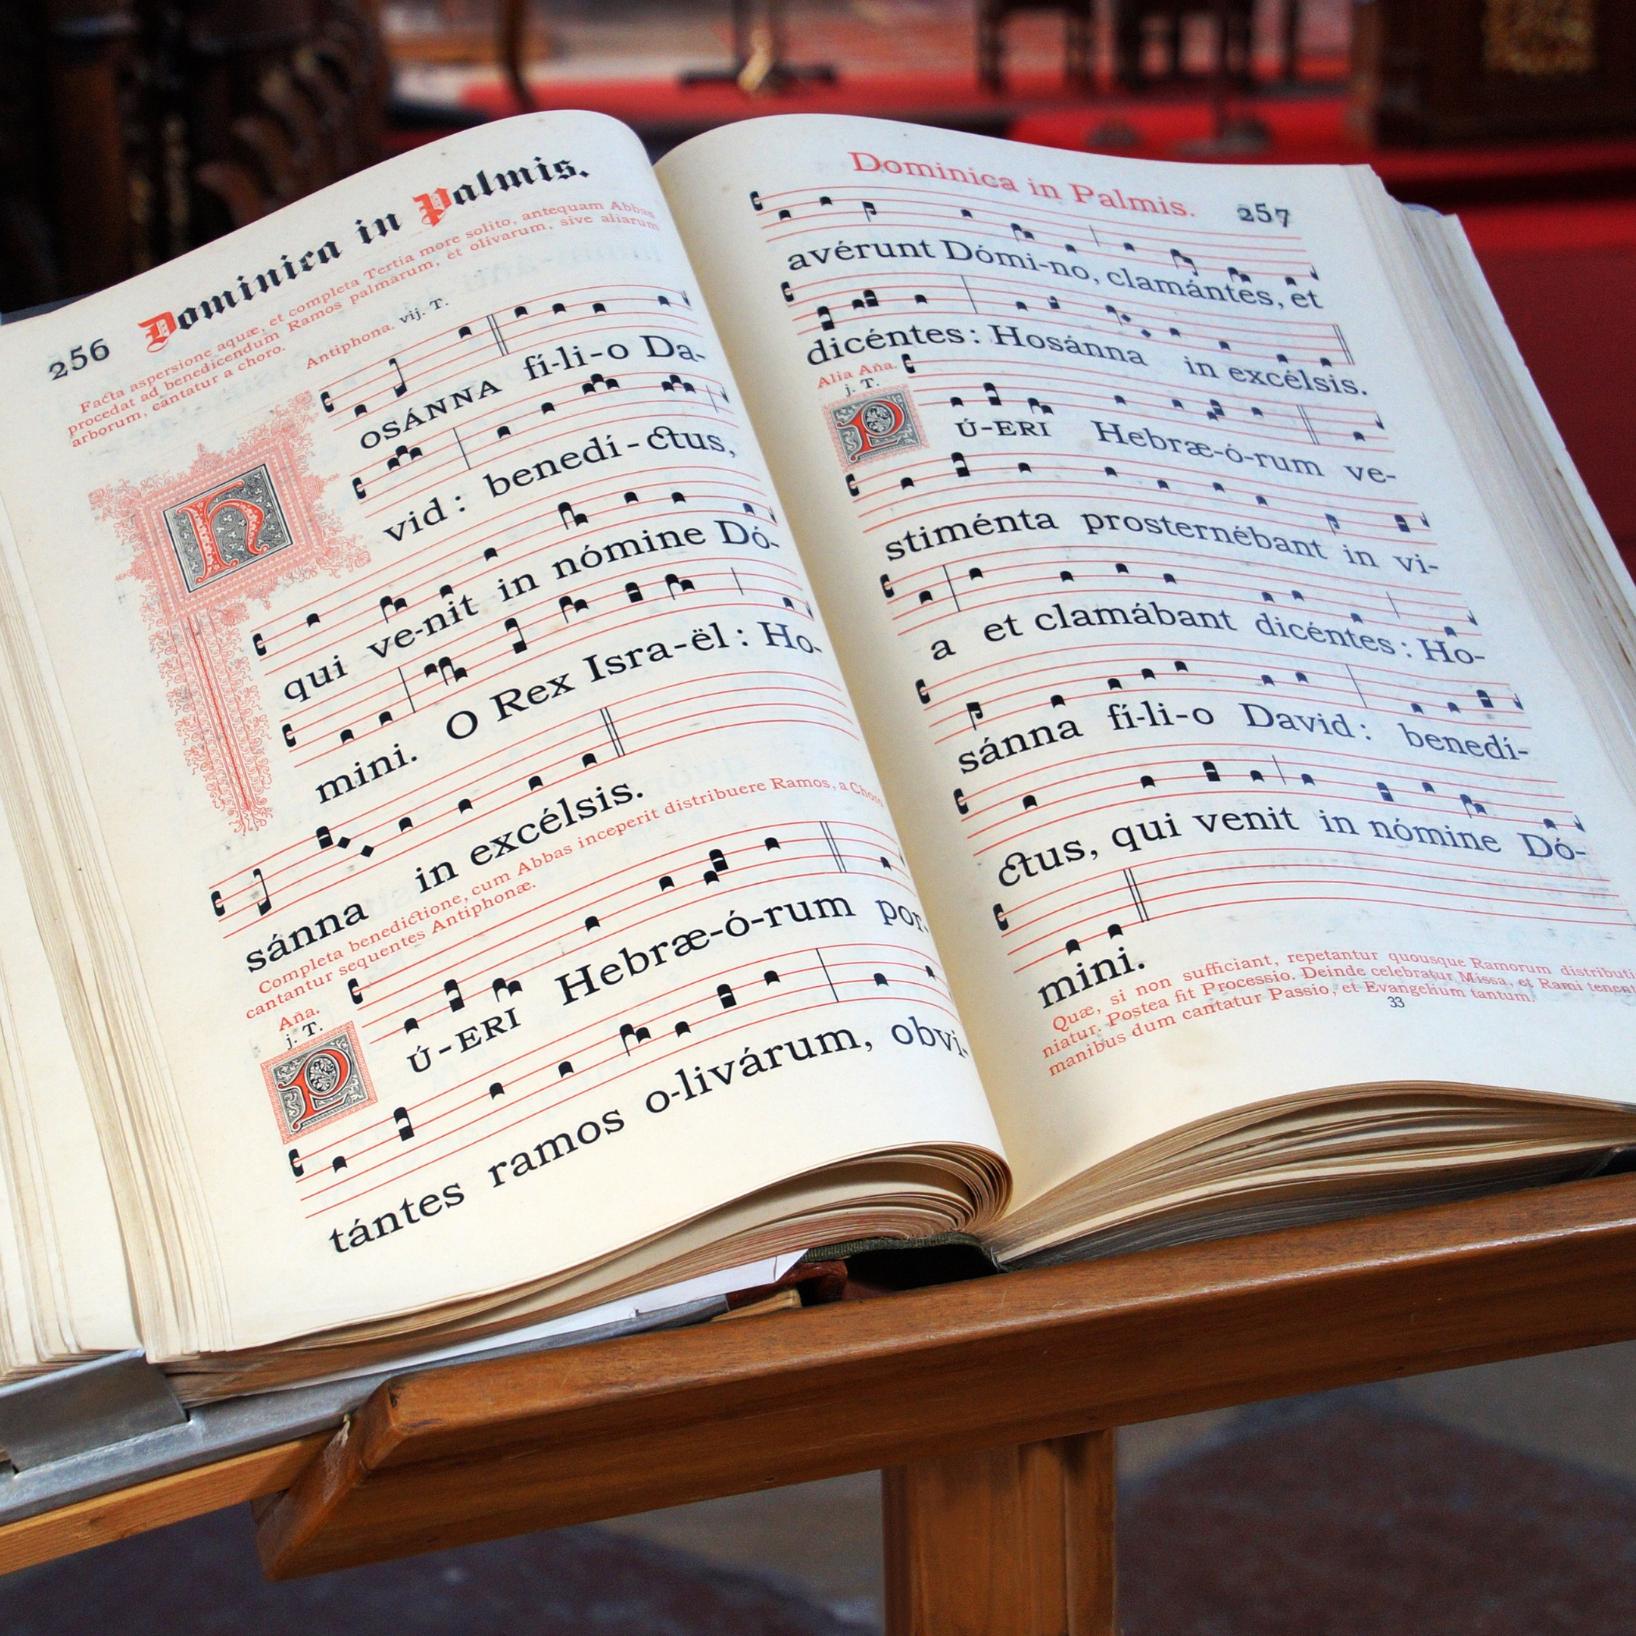 256
Dominica in Palmis.
Facta aspersione aquæ, et completa Tertia more solito, antequam Abbas
procedat ad benedicendum Ramos palmarum, et olivarum, sive aliarum
arborum, cantatur a choro.
Antiphona. vij. T.
HOSÁNNA fí-li-o Da-
vid: benedí-ctus,
qui ve-nit in nómine Dó-
mini. O Rex Isra-ël: Ho-
sánna in excélsis.
Completa benedictione, cum Abbas inceperit distribuere Ramos, a Choro
cantantur sequentes Antiphonæ.
Aña.
j. T.
PÚ-ERI Hebræ-ó-rum por-
tántes ramos o-livárum, obvi-
Dominica in Palmis. 257
avérunt Dómi-no, clamántes, et
dicéntes: Hosánna in excélsis.
Alia Aña.
j. T.
PÚ-ERI Hebræ-ó-rum ve-
stiménta prosternébant in vi-
a et clamábant dicéntes: Ho-
sánna fí-li-o David: benedí-
ctus, qui venit in nómine Dó-
mini.
Quæ, si non sufficiant, repetantur quousque Ramorum distributi
niatur. Postea fit Processio. Deinde celebratur Missa, et Rami tenent
manibus dum cantatur Passio, et Evangelium tantum.
33